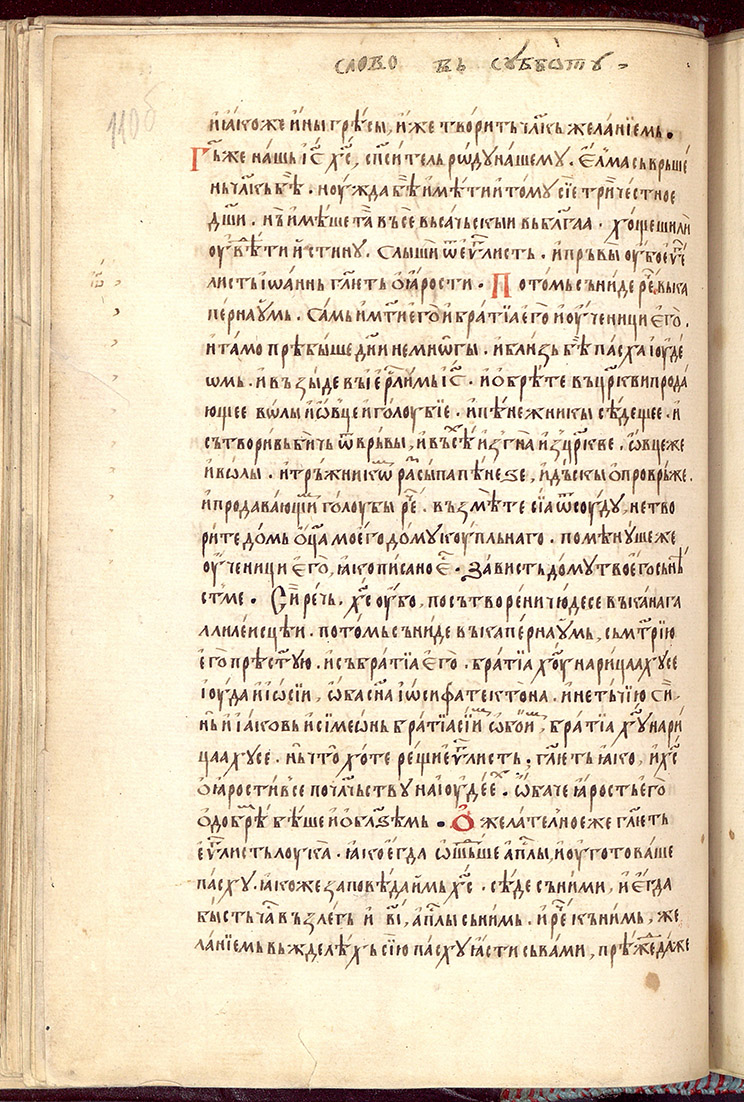 слово въ субботу
110б
и҆ꙗкоже и҆ны грѣсы, и҆же творитъ чл҃кь желанїемь.
Гь҃же нашь і҆с҃ х҃с, сп҃ситель рѡду нашему. є҆лма сьврьше
нь чл҃кь бѣ. ноужда бѣ и҆мѣти и҆ тому сїе триⷱ҇честное
дш҃и. нь и҆мѣше та въсе въсачьскыи въ бл҃гаа. хощеши ли
оу҆вѣти и҆стину. слыши ѿ еу҆ⷢ҇листь. и҆ прьвы оу҆бо еу҆ⷢ҇
листь і҆ѡаннь гл҃еть о҆ ꙗ҆рости. Потомь съниде реⷱ҇ въ ка
пернаꙋмь. самь и҆ мт҃и е҆го и҆ братїа е҆го и҆ оу҆ченици е҆го.
и҆ тамо прѣбыше дн҃и не мнѡгы. и҆ близь бѣ пасха і҆ꙋде
ѡмь. и҆ възыде въ і҆ер҃лимь і҆с҃. и҆ ѡ҆брѣте въ цр҃кви прода
ющее вѡлы и҆ ѡ҆вце и҆ голоубїе. и҆ пѣнежникы сѣдещее. и҆
сътвори вь бичь ѿ врьвы, и҆ въсѣ и҆згна и҆з цр҃кве. ѡ҆вце же
и҆ вѡлы. и҆ трьжникѡⷨ расыпа пѣнеѕе, и҆ дъскы о҆провръже.
и҆ продаваюши голоубы реⷱ҇. възмѣте сїа ѿсоудꙋ, не тво
рите дѡмь ѡ҆ц҃а моего домꙋ коупльнаго. помѣнꙋше же
оу҆ченици е҆го, ꙗко писано єⷭ҇. зависть домꙋ твоего сънѣ
стⸯ ме. Си҆ речь. х҃с оу҆бо, по сътворени чюдесе въ кана га
ллилеисцѣи. потомь съниде въ капернаꙋмь, сь мт҃рїю
е҆го прѣстⷪ҇ую. и҆ съ братїа е҆го. братїа х҃ꙋ нарицаахꙋ се
і҆ꙋда и҆ і҆ѡсїи, ѡ҆ба сн҃а і҆ѡсифа тектѡна. и҆ не тьчїю си
нь и҆ і҆аковь и҆ симеѡнь братїа сїи ѡ҆бѡи, братїа х҃ꙋ нари
цаахꙋ се. нь что хоте рещи еу҆ⷢ҇листь. гл҃еть ꙗко, и҆ х҃с
о҆ ꙗ҆рости все по чл҃чьствꙋ на і҆ꙋдее. ѡ҆баче ꙗ҆рость е҆го
о҆ добрѣ бѣше и҆ о҆ бл҃зѣмь. О желателное же гл҃еть
еу҆ⷢ҇листь лоука. ꙗко е҆гда ѡ҆тшьше ап҃лы, и҆ оу҆готоваше
пасхꙋ. ꙗкоже заповѣда и҆мь х҃с. сѣде съ ними, и҆ е҆гда
бысть чаⷭ҇ възлегь и҆ в҃і, ап҃лы сьнимь. и҆ реⷱ҇ кь нимь, же
ланїемь въжделѣхь сїю пасхꙋ ꙗсти съ вами, прѣжде даже